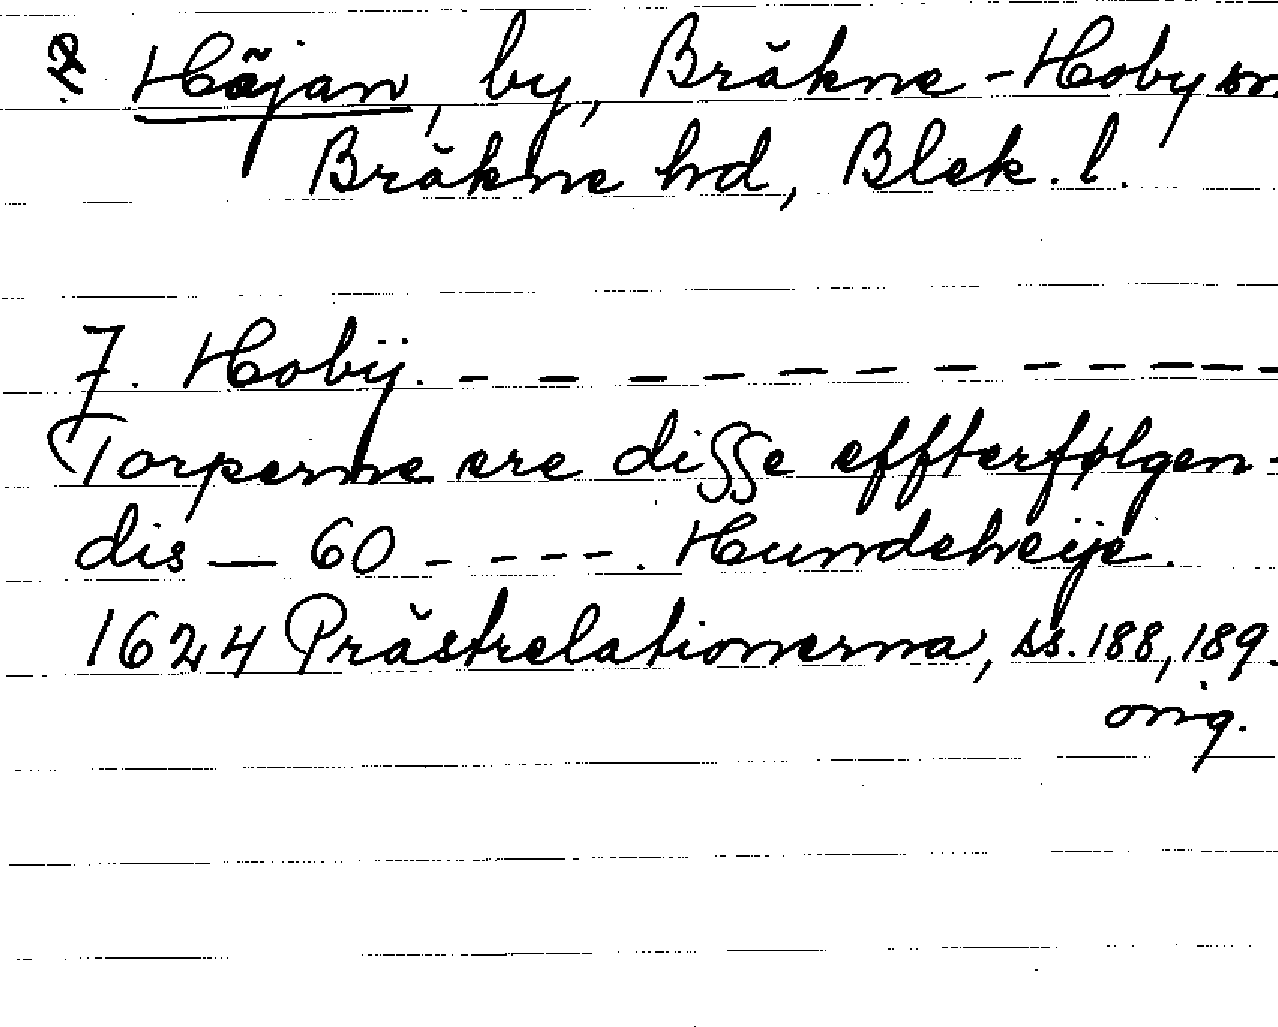 Höjan, by, Bräkne-Hoby sn.
Bräkne hd, Blek. l.
7. Hobÿ. – – – – – – – – – – –
Torperne ere diſſe effterfølgen-
dis — 60 - - - - -. Hundeheije.
1624 Prästrelationerna, ss. 188, 189.
orig.